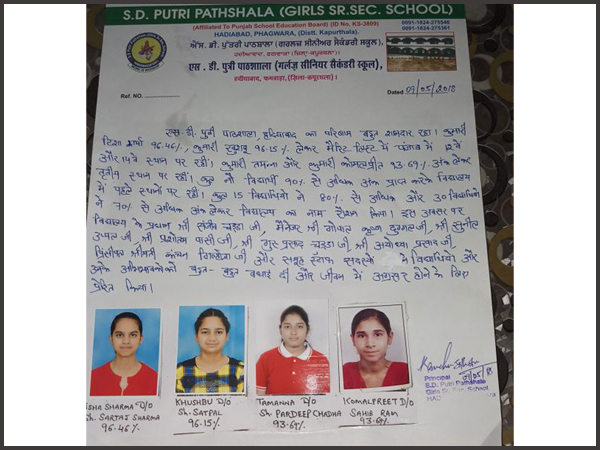 S.D. PUTRI PATHSHALA (GIRLS SR.SEC. SCHOOL)
(Affiliated To Punjab School Education Board) (ID No. KS-3809)
HADIABAD, PHAGWARA, (Distt. Kapurthala).
0091-1824-275546
0091-1824-275361
ਐਸ. ਡੀ. ਪੁੱਤਰੀ ਪਾਠਸ਼ਾਲਾ (ਗਰਲਜ਼ ਸੀਨੀਅਰ ਸੈਕੰਡਰੀ ਸਕੂਲ),
ਹਦੀਆਬਾਦ, ਫਗਵਾੜਾ (ਜ਼ਿਲ੍ਹਾ-ਕਪੂਰਥਲਾ)।
एस. डी. पुत्री पाठशाला (गर्लज़ सीनियर सैकंडरी स्कूल),
हदीयाबाद, फगवाड़ा, (ज़िला-कपूरथला)।
Ref. NO.
Dated 09/05/2018
एस.डी. पुत्री पाठशाला, हदियाबाद का परिणाम बहुत शानदार रहा। कुमारी
टिशा शर्मा 96.46%, कुमारी खुशबू 96.15% लेकर मैरिट लिस्ट में पंजाब में 12वें
और 14वें स्थान पर रहीं। कुमारी तमन्ना और कुमारी कोमलप्रीत 93.69% अंक लेकर
तृतीय स्थान पर रहीं। कुल नौ विद्यार्थी 90% से अधिक अंक प्राप्त करके विद्यालय
में पहले स्थानों पर रहीं। कुल 15 विद्यार्थियों ने 80% से अधिक और 30 विद्यार्थियों
ने 70% से अधिक अंक लेकर विद्यालय का नाम रौशन किया। इस अवसर पर
विद्यालय के प्रधान श्री चड्डा जी, मैनेजर श्री गोपाल कृष्ण दुग्गल जी, श्री सुनील
उप्पल जी, श्री पासी जी, श्री गुरु प्रसाद चड्डा जी, श्री अयोध्या प्रसाद जी,
प्रिंसीपल श्रीमती कंचन जी और समूह स्टाफ सदस्यों ने विद्यार्थियों और
उनके अभिभावकों को बहुत-बहुत बधाई दी और जीवन में अग्रसर होने के लिए
प्रेरित किया।
ISHA SHARMA D/O
Sh. SARTAJ SHARMA
96.46%
KHUSHBU D/O
Sh. SATPAL
96.15%
TAMANNA D/O
Sh. PARDEEP CHADHA
93.69%
KOMALPREET D/O
SAHIB RAM
93.69%
Principal 09/05/18
S.D. Putri Pathshala
Girls Sr. Sec. School